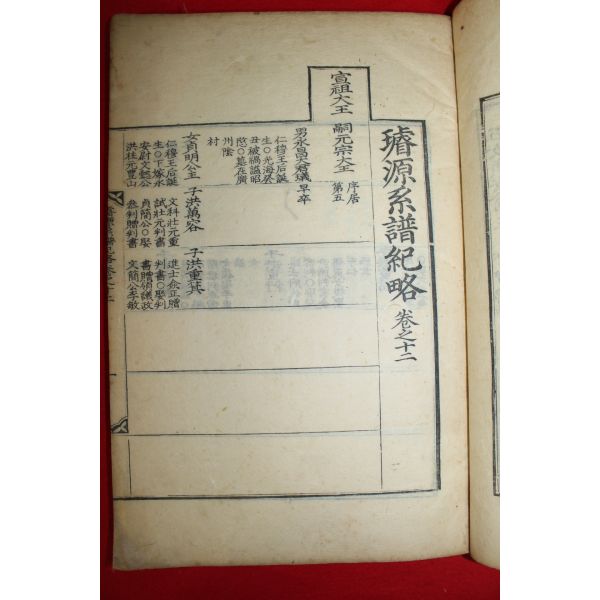 璿源系譜紀略 卷之十二
宣祖大王 嗣元宗大王 序居第五
男永昌大君㼁 早卒
仁穆王后誕
生○光海癸
丑被禍諡昭
愍○墓在廣
州陰
村
女貞明公主
仁穆王后誕
生○下嫁永
安尉文懿公
洪柱元豊山
子洪萬容
文科壯元重
試壯元判書
貞簡公○娶
參判贈判書
子洪重箕
進士僉正贈
判書○娶判
書贈領議政
文簡公李敏